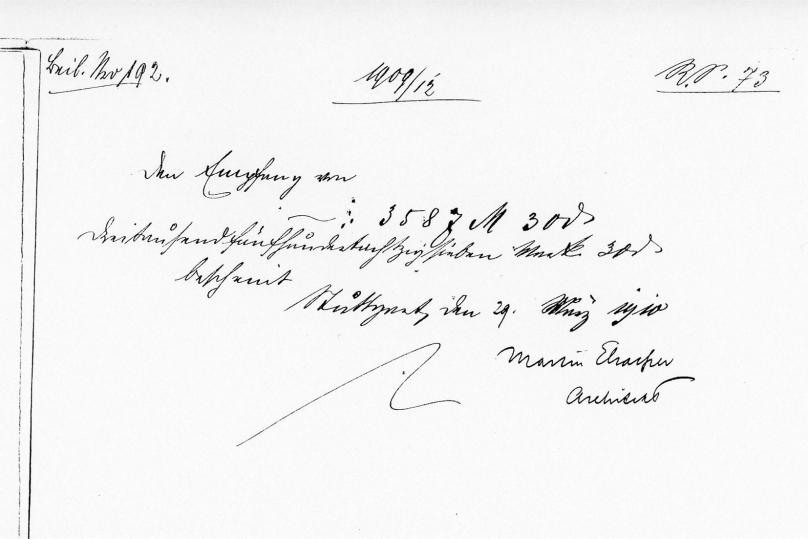 Beil. No 192.
1909/12
R. P. 73
Den Empfang von
3587 M 30 d
dreitausendfünfhundertachtzigsieben Mark 30 d
bescheint
Stuttgart, den 29. März 1910
Martin Elsaesser
Architekt